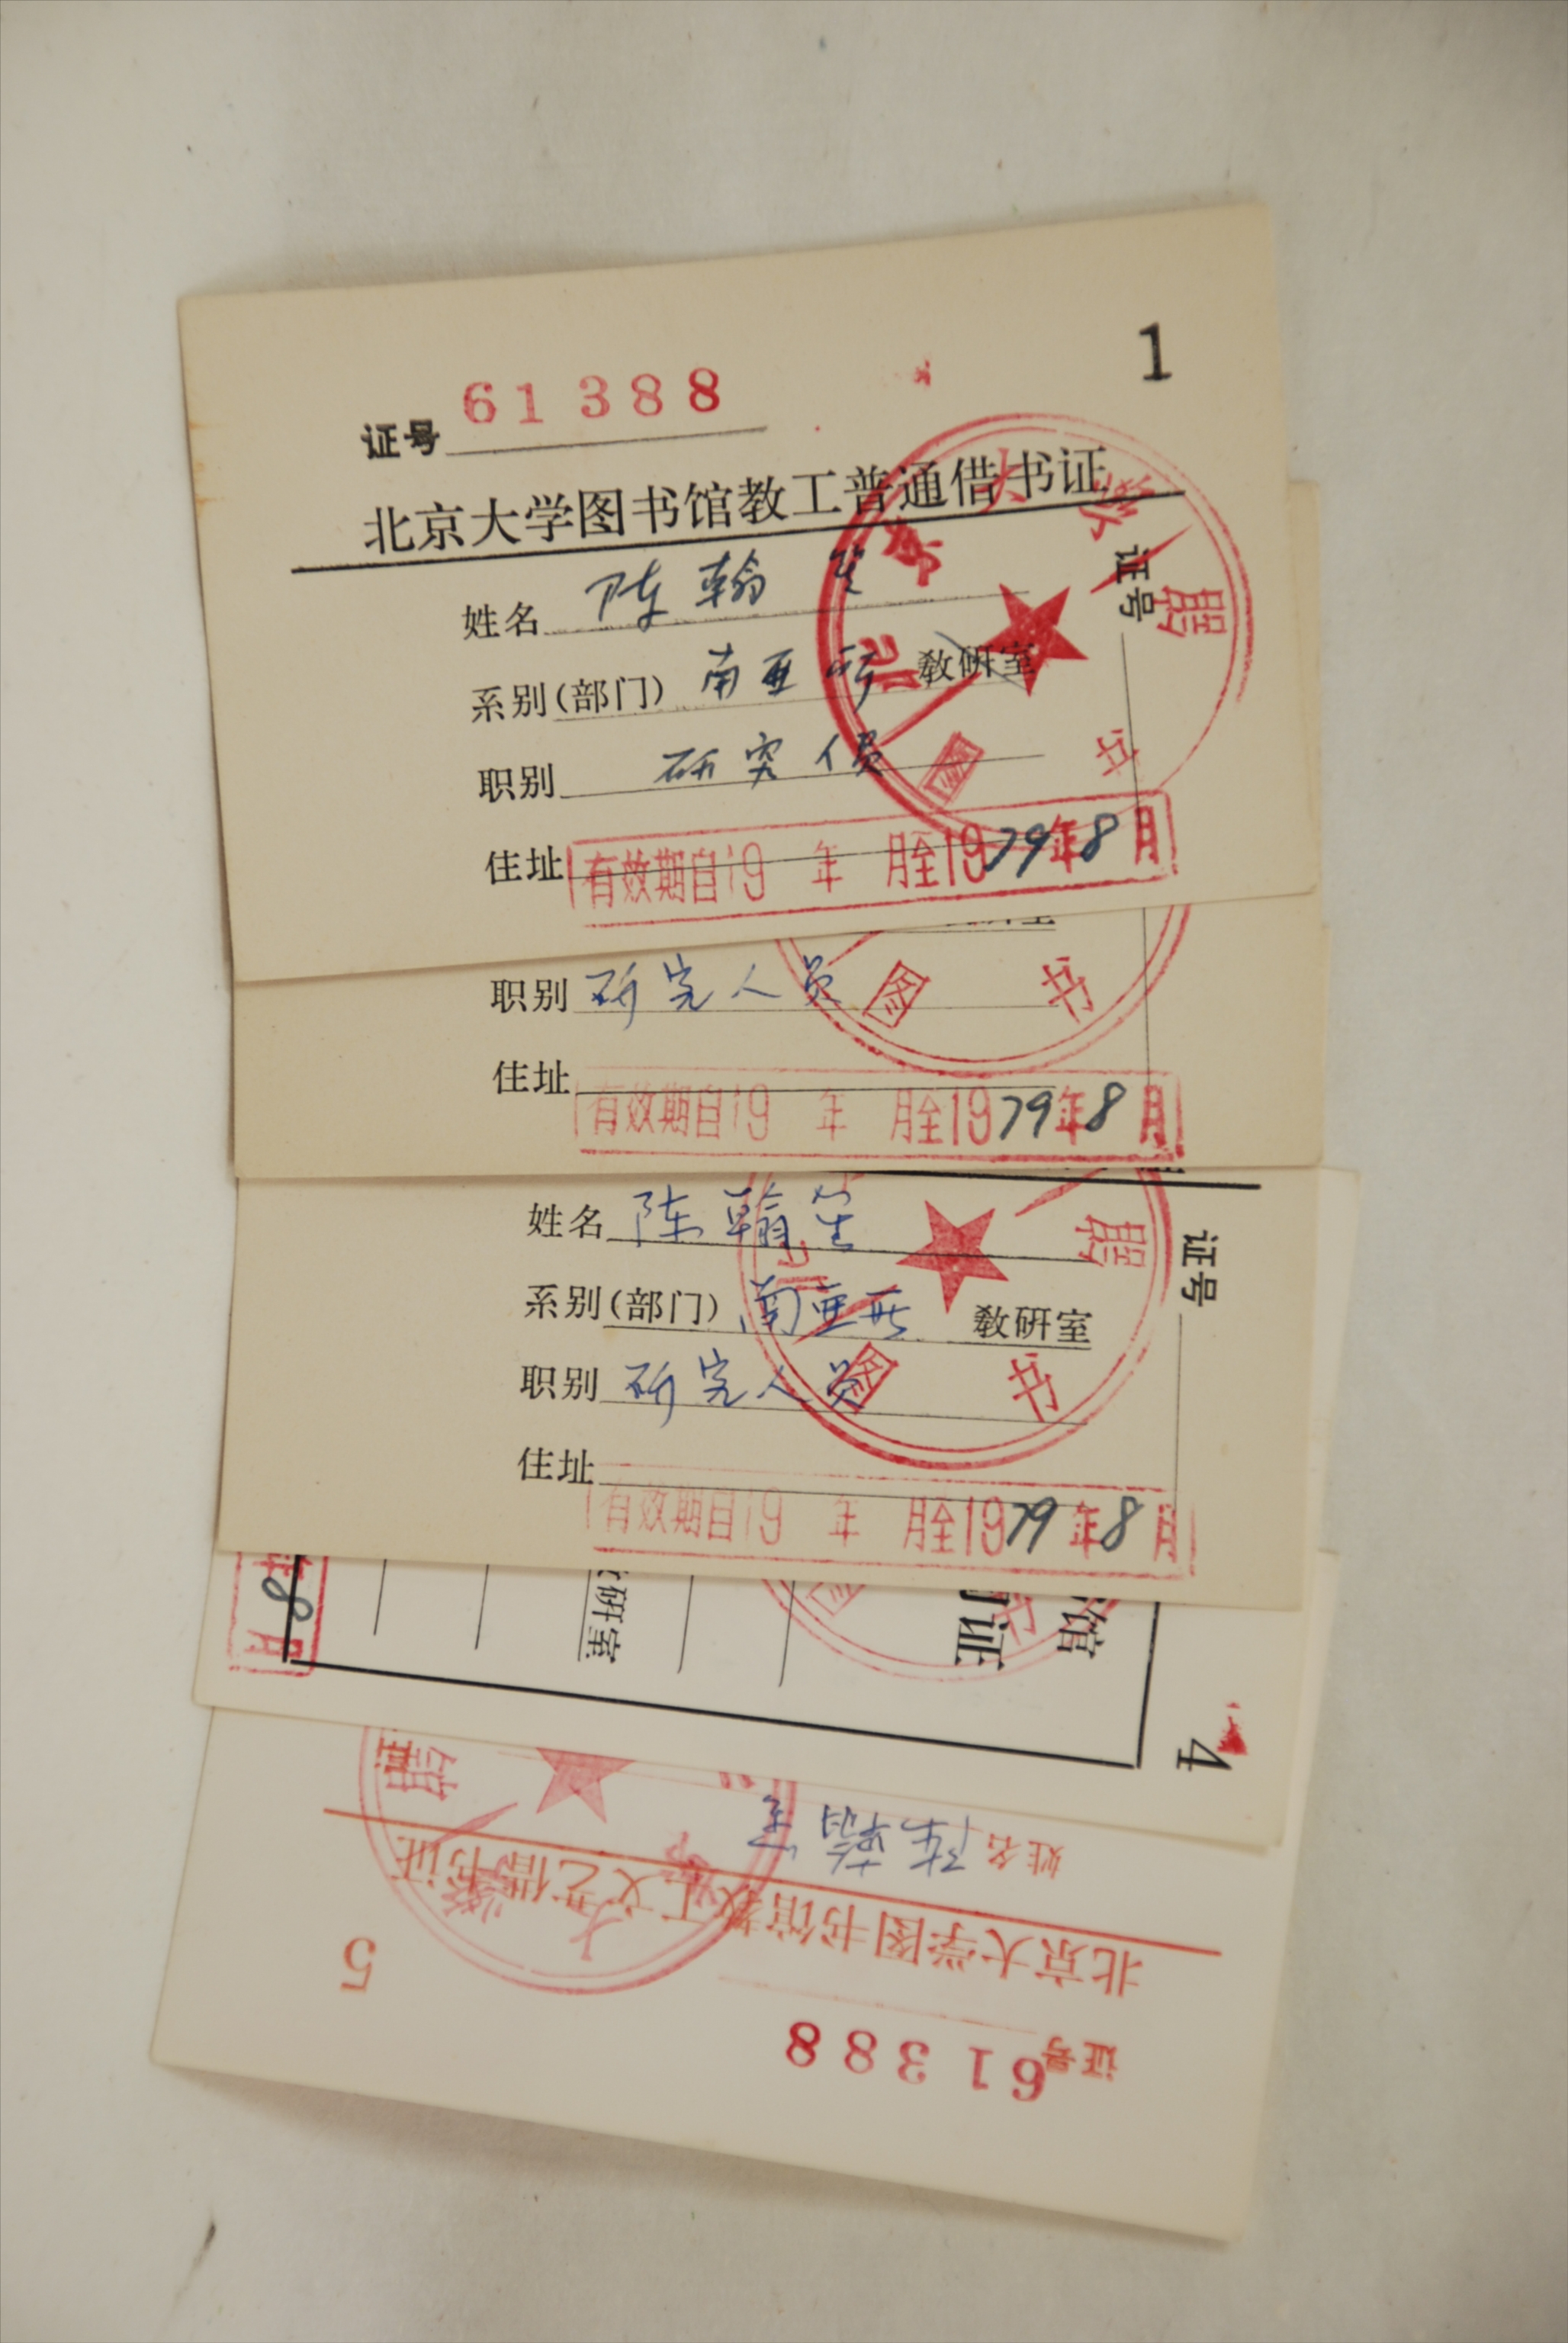 1
证号 61388
北京大学图书馆教工普通借书证
姓名 陈翰笙
系别(部门) 南亚所 教研室
职别 研究员
住址
有效期自19 年 月至1979年8月
证号
北京大学图书馆
职别 研究人员
住址
有效期自19 年 月至1979年8月
图书
姓名 陈翰笙
系别(部门) 南亚所 教研室
职别 研究人员
住址
有效期自19 年 月至1979年8月
证号
图书馆
馆
证
研室
年8月
4
5
证号 61388
北京大学图书馆教工文艺借书证
姓名 陈翰笙